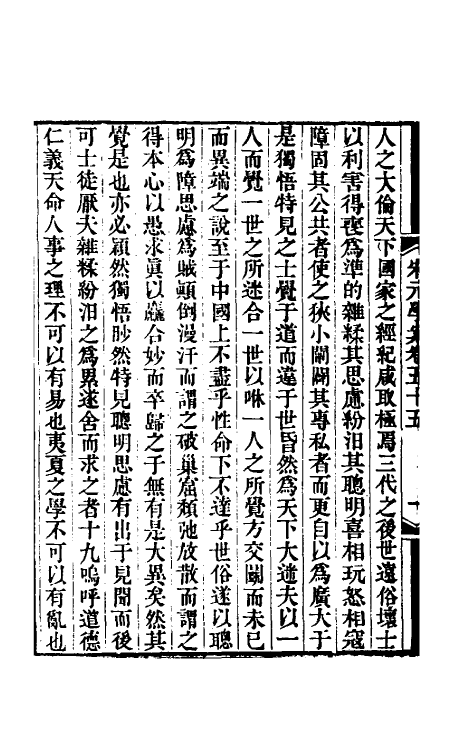 人之大倫天下國家之經紀咸取極焉三代之後世遠俗壞士
以利害得喪爲準的雜糅其思慮紛汨其聰明喜相玩怒相寇
障固其公共者使之狹小闡闢其專私者而更自以爲廣大于
是獨悟特見之士覺于道而違于世昏然爲天下大迷夫以一
人而覺一世之所迷合一世以咻一人之所覺方交鬭而未已
而異端之說至于中國上不盡乎性命下不達乎世俗遂以聰
明爲障思慮爲賊顚倒漫汗而謂之破巢窟頹弛放散而謂之
得本心以愚求眞以麤合妙而卒歸之于無有是大異矣然其
覺是也亦必穎然獨悟眇然特見聰明思慮有出于見聞而後
可士徒厭夫雜糅紛汨之爲累遂舍而求之者十九嗚呼道德
仁義天命人事之理不可以有易也夷夏之學不可以有亂也
宋元學案卷五十五
十